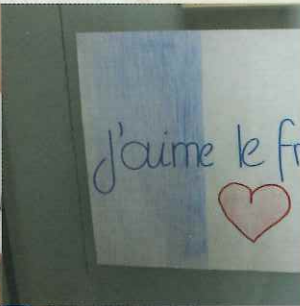 J'aime le fr